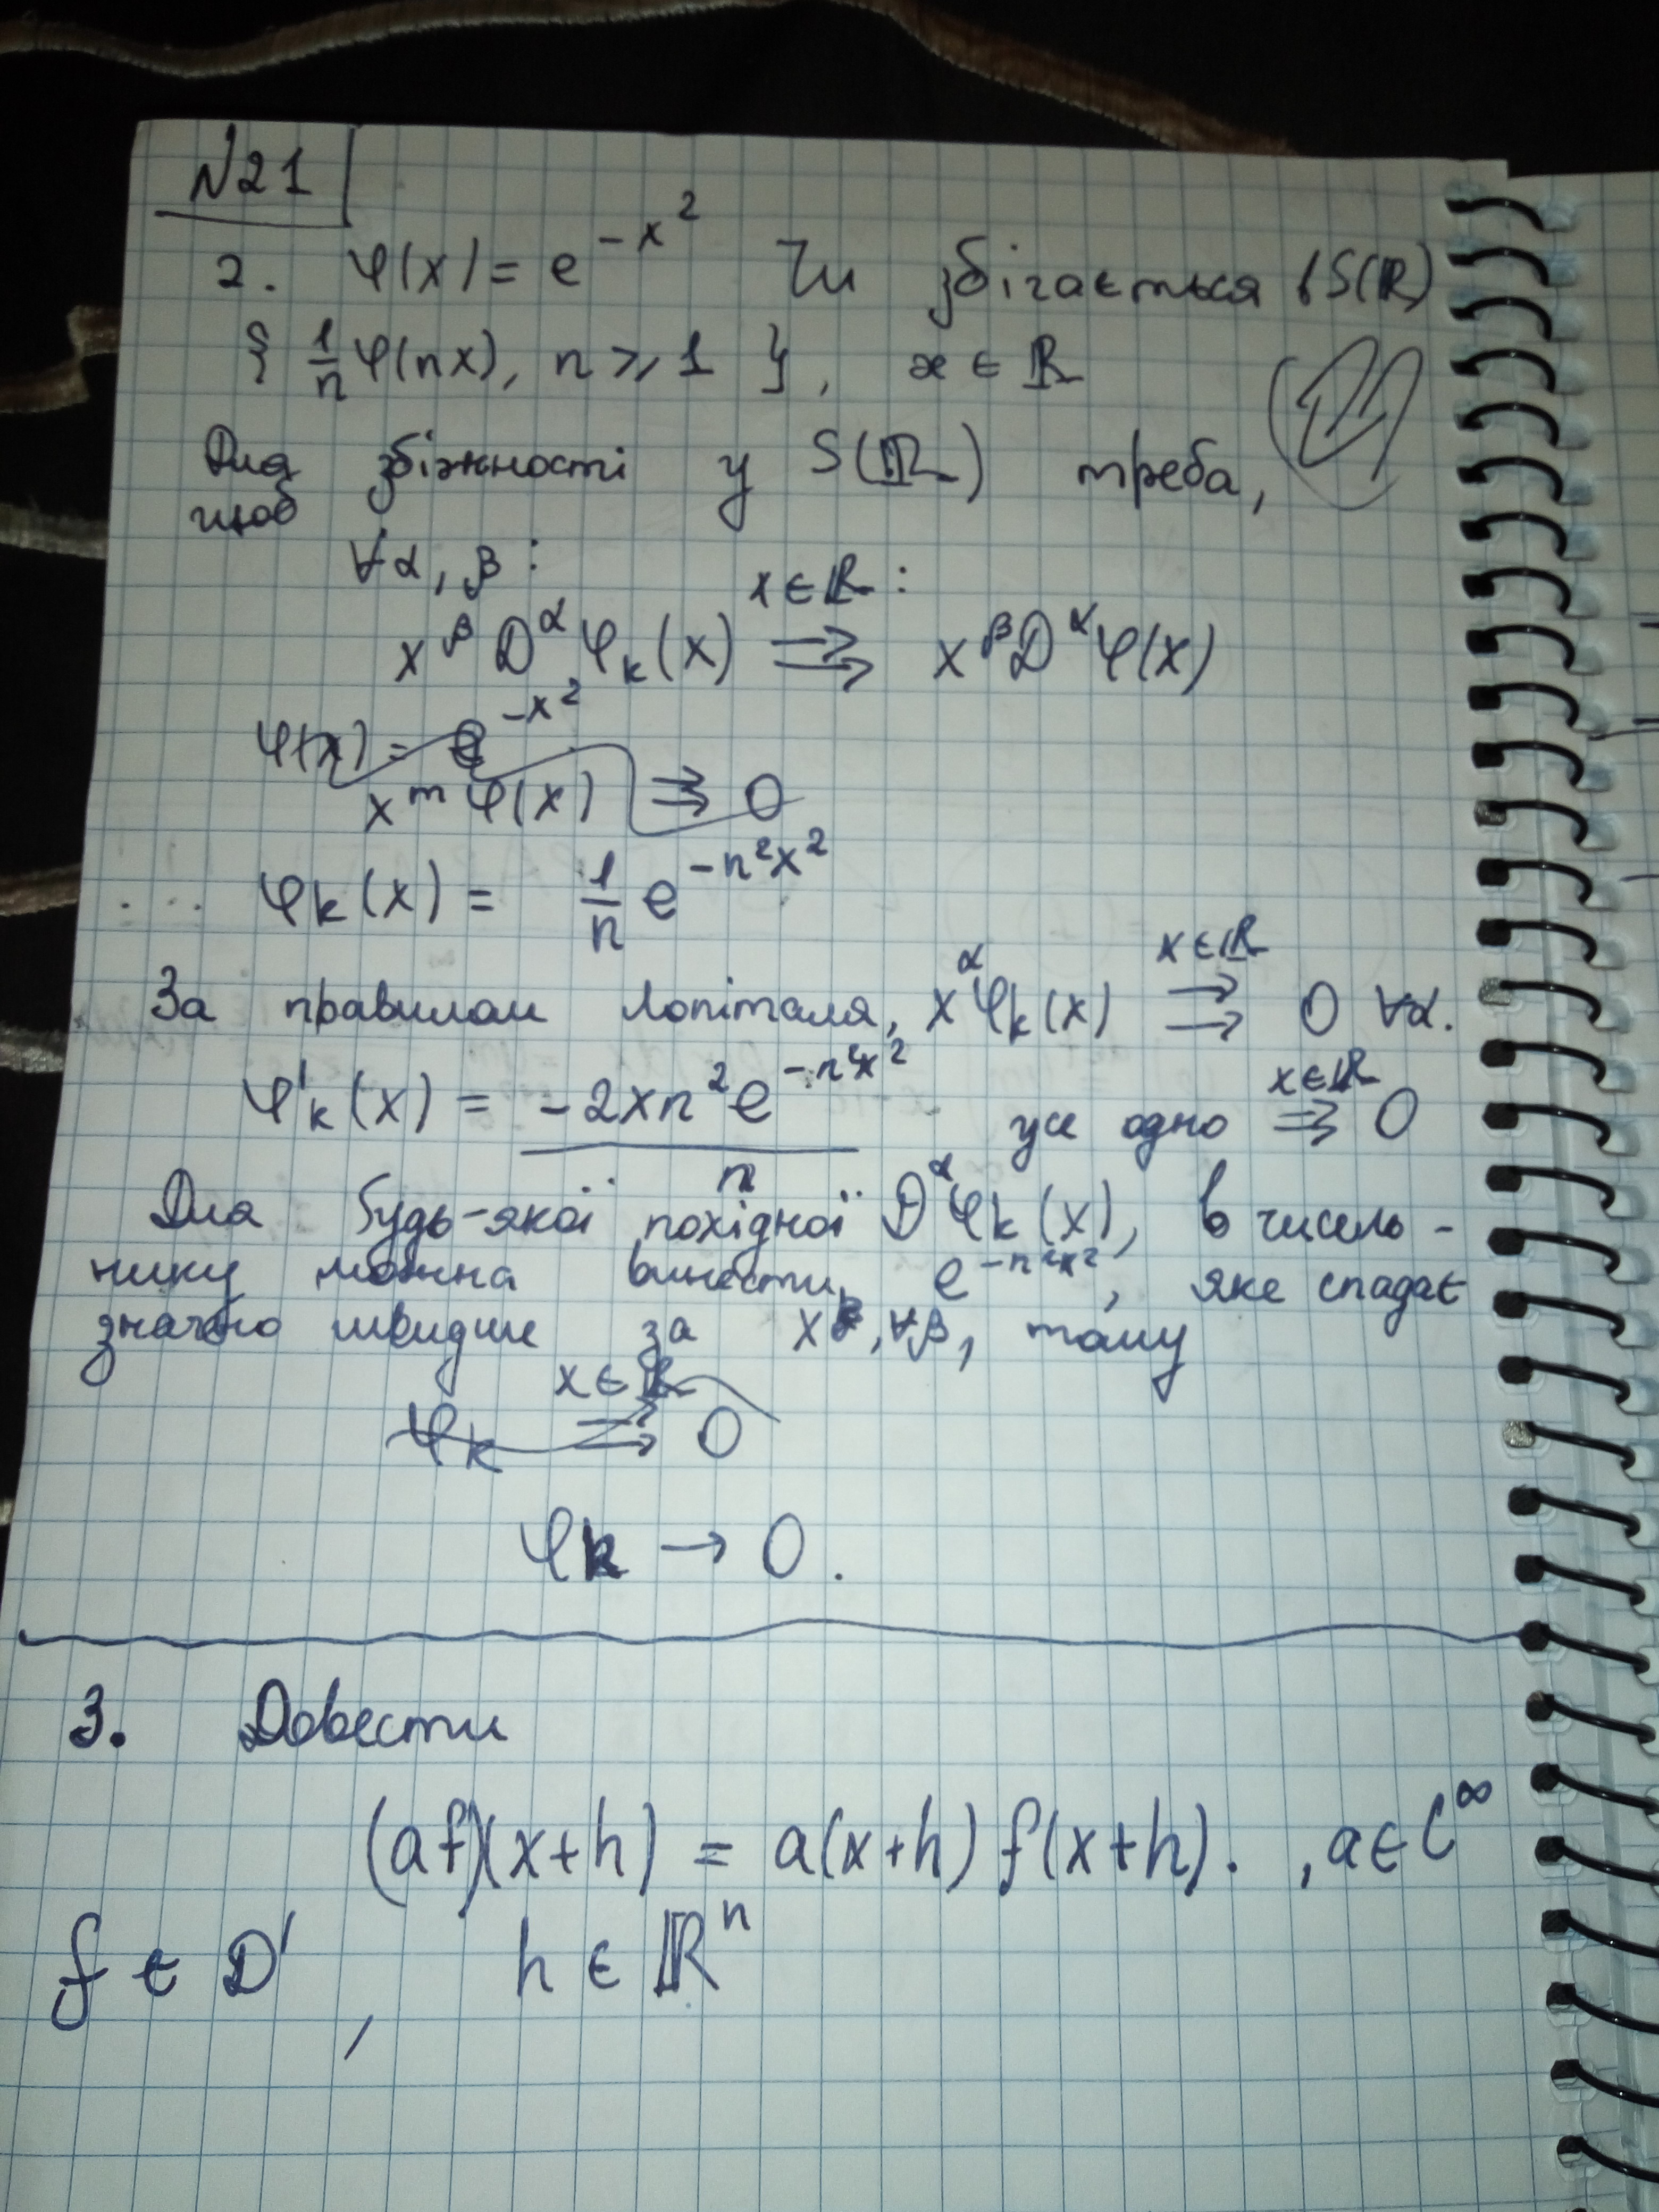 N21
2. φ(x) = e^{-x^2} Чи збігається в S(ℝ)
{ 1/n φ(nx), n ⩾ 1 }, x ∈ ℝ
Для збіжності у S(ℝ) треба,
щоб
∀α, β :
x ∈ ℝ :
x^β D^α φ_k(x) ⇉ x^β D^α φ(x)
φ(x) = e^{-x^2}
x^m φ(x) ⇉ 0
φ_k(x) = 1/n e^{-n^2x^2}
За правилом Лопіталя, x^α φ_k(x) ⇉^{x∈ℝ} 0 ∀α.
φ'_k(x) = -2xn^2e^{-n^2x^2} / n усе одно ⇉^{x∈ℝ} 0
Для будь-якої похідної D^α φ_k(x), в чисель-
нику можна винести e^{-n^2x^2}, яке спадає
значно швидше за x^β, ∀β, тому
φ_k ⇉^{x∈ℝ} 0
φ_k → 0.
3. Довести
(af)(x+h) = a(x+h) f(x+h). , a ∈ C^∞
f ∈ D', h ∈ ℝ^n